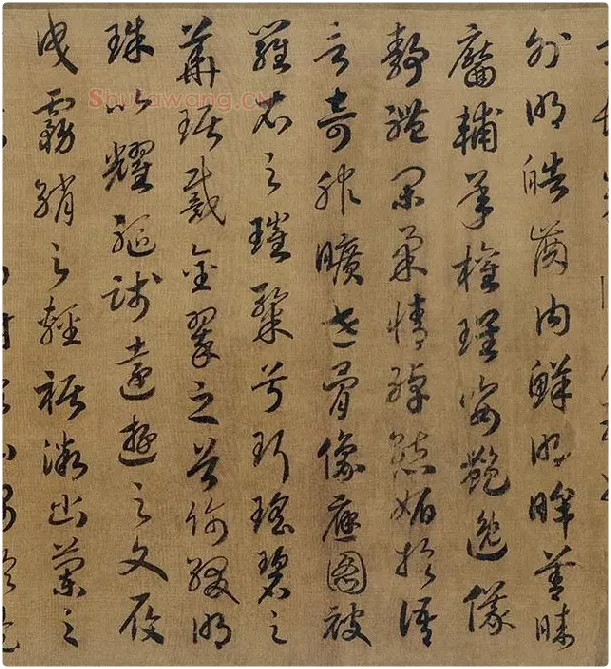 外朗皓齒内鮮明眸善睞
靨輔承權瓌姿艷逸儀
靜體閑柔情綽態媚於語
言奇服曠世骨像應圖被
羅衣之璀粲兮珥瑤碧之
華琚戴金翠之首飾綴明
珠以耀軀踐遠遊之文履
曳霧綃之輕裾微幽蘭之
Shufawang.cn